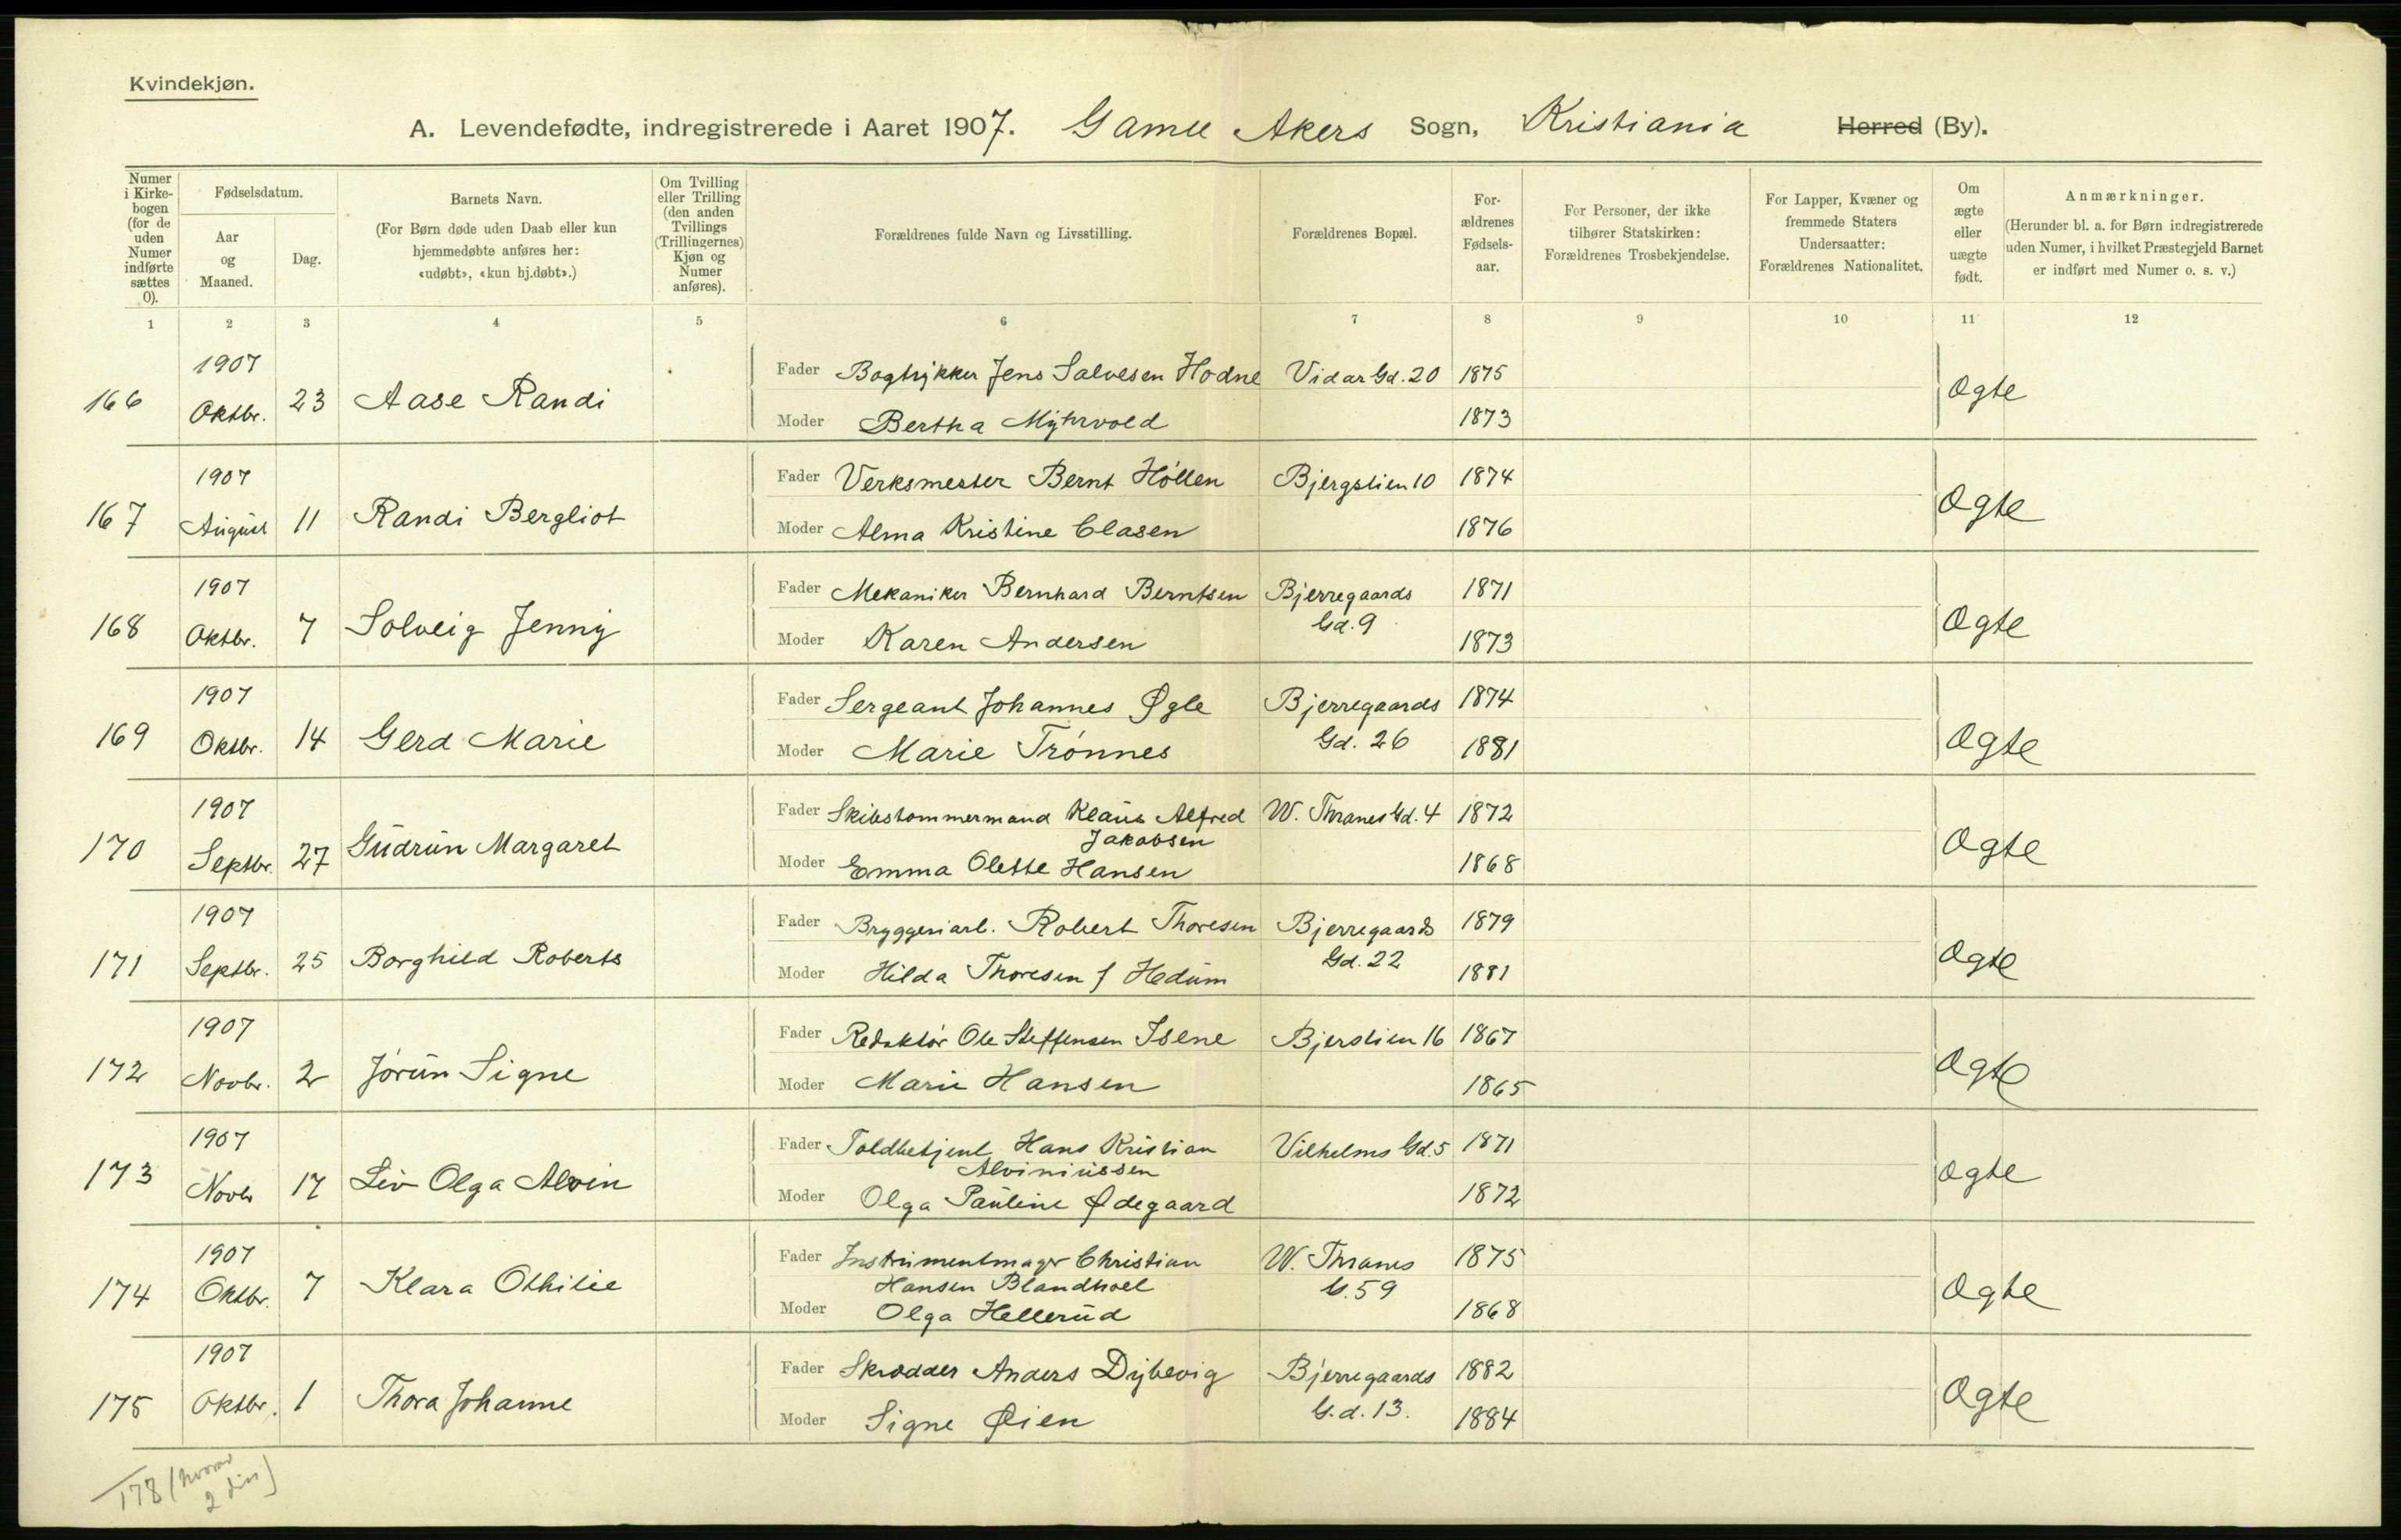 Kvindekjøn.
A. Levendefødte, indregistrerede i Aaret 1907. Gamle Akers Sogn, Kristiania Herred (By).
Numer i Kirkebogen (for de uden Numer indførte sættes 0).
Fødselsdatum.
Aar og Maaned.
Dag.
Barnets Navn.
(For Børn døde uden Daab eller kun hjemmedøbte anføres her: «udøbt», «kun hj.døbt».)
Om Tvilling eller Trilling (den anden Tvillings (Trillingernes) Kjøn og Numer anføres).
Forældrenes fulde Navn og Livsstilling.
Forældrenes Bopæl.
Forældrenes Fødselsaar.
For Personer, der ikke tilhører Statskirken: Forældrenes Trosbekjendelse.
For Lapper, Kvæner og fremmede Staters Undersaatter: Forældrenes Nationalitet.
Om ægte eller uægte født.
Anmærkninger.
(Herunder bl. a. for Børn indregistrerede uden Numer, i hvilket Præstegjeld Barnet er indført med Numer o. s. v.)
1 2 3 4 5 6 7 8 9 10 11 12
1907 Fader Bogtrykker Jens Salvesen Hodne Vidar Gd. 20 1875
166 Oktbr. 23 Aase Randi Ægte
Moder Bertha Myhrvold 1873
1907 Fader Verksmester Bernt Höllen Bjergstien 10 1874
167 August 11 Randi Bergliot Ægte
Moder Alma Kristine Clasen 1876
1907 Fader Mekaniker Bernhard Berntsen Bjerregaards 1871
168 Oktbr. 7 Solveig Jenny Gd. 9 Ægte
Moder Karen Andersen 1873
1907 Fader Sergeant Johannes Øgle Bjerregaards 1874
169 Oktbr. 14 Gerd Marie Gd. 26 Ægte
Moder Marie Trönnes 1881
1907 Fader Skibstømmermand Klaus Alfred W. Thranes Gd. 4 1872
Jakobsen
170 Septbr. 27 Gudrun Margaret Ægte
Moder Emma Olette Hansen 1868
1907 Fader Bryggeriarb. Robert Thoresen Bjerregaards 1879
171 Septbr. 25 Borghild Roberts Gd. 22 Ægte
Moder Hilda Thoresen f Hedum 1881
1907 Fader Redaktör Ole Steffensen Isene Bjerstien 16 1867
172 Novbr. 2 Jörun Signe Ægte
Moder Marie Hansen 1865
1907 Fader Toldbetjent Hans Kristian Vilhelms Gd. 5 1871
Alviniussen
173 Novbr 17 Liv Olga Alvin ægte
Moder Olga Pauline Ødegaard 1872
1907 Fader Instrumentmager Christian W. Thranes 1875
Hansen Blandhoel G. 59
174 Oktbr. 7 Klara Othilie Ægte
Moder Olga Hellerud 1868
1907 Fader Skrædder Anders Dybevig Bjerregaards 1882
175 Oktbr. 1 Thora Johanne G.d. 13. Ægte
Moder Signe Øien 1884
178 (hvorav
2